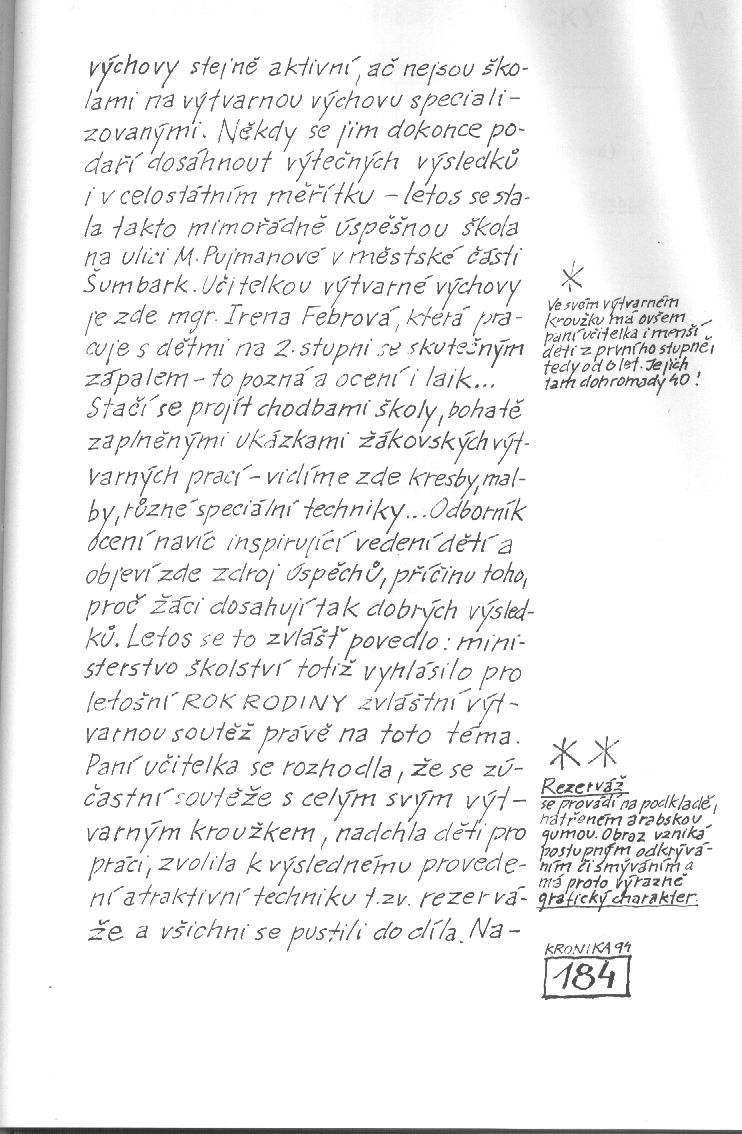 výchovy stejně aktivní, ač nejsou ško-
lami na výtvarnou výchovu speciali-
zovanými. Někdy se jim dokonce po-
daří dosáhnout výtečných výsledků
i v celostátním měřítku – letos se sta-
la takto mimořádně úspěšnou škola
na ulici M. Pujmanové v městské části
Šumbark. Učitelkou výtvarné výchovy
je zde mgr. Irena Febrová, která pra-
cuje s dětmi na 2. stupni se skutečným
zápalem – to pozná a ocení i laik...
Stačí se projít chodbami školy, bohatě
zaplněnými ukázkami žákovských výt-
varných prací – vidíme zde kresby, mal-
by, různé speciální techniky... Odborník
ocení navíc inspirující vedení dětí a
objeví zde zdroj úspěchů, příčinu toho,
proč žáci dosahují tak dobrých výsled-
ků. Letos se to zvlášť povedlo: mini-
sterstvo školství totiž vyhlásilo pro
letošní ROK RODINY zvláštní výt-
varnou soutěž právě na toto téma.
Paní učitelka se rozhodla, že se zú-
častní soutěže s celým svým výt-
varným kroužkem, nadchla děti pro
práci, zvolila k výslednému provede-
ní atraktivní techniku t.zv. rezervá-
že a všichni se pustili do díla. Na-
*
Ve svém výtvarném
kroužku má ovšem
paní učitelka i menší
děti z prvního stupně,
tedy od 6 let. Je jich
tam dohromady 40!
* *
Rezerváž
se provádí na podkladě,
natřeném arabskou
gumou. Obraz vzniká
postupným odkrývá-
ním či smýváním a
má proto výrazně
grafický charakter.
KRONIKA 94
184